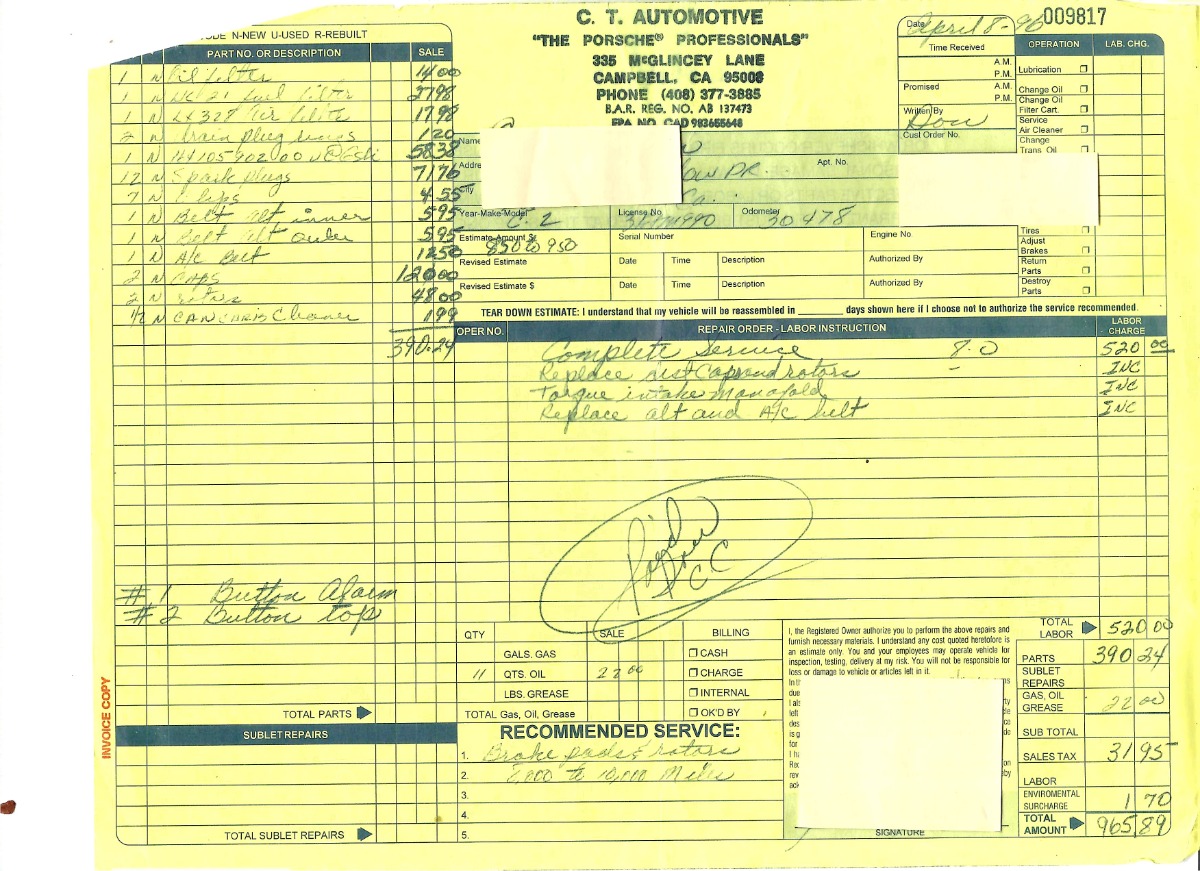 C. T. AUTOMOTIVE
"THE PORSCHE® PROFESSIONALS"
335 McGLINCEY LANE
CAMPBELL, CA 95008
PHONE (408) 377-3885
B.A.R. REG. NO. AB 137473
EPA NO. CAD 983655648
009817
Date April 8-96
Time Received
A.M.
P.M.
Promised A.M.
P.M.
Written By
Cust Order No.
OPERATION LAB. CHG.
Lubrication
Change Oil
Change Oil
Filter Cart.
Service
Air Cleaner
Change
Trans. Oil
Tires
Adjust
Brakes
Return
Parts
Destroy
Parts
N-NEW U-USED R-REBUILT
PART NO. OR DESCRIPTION SALE
1 N Oil filter 14 00
1 N fuel filter 27 98
1 N LX 328 Air filter 17 98
2 N drain plug rings 1 20
1 N 58 38
12 N Spark plugs 71 76
7 N Clips 4 55
1 N Belt Alt inner 5 95
1 N Belt Alt outer 5 95
1 N A/C Belt 12 50
2 N CAPS 120 00
2 N rotors 48 00
1/2 N CAN CARB Cleaner 1 99
390.24
# 1 Button Alarm
# 2 Button top
TOTAL PARTS
SUBLET REPAIRS
TOTAL SUBLET REPAIRS
INVOICE COPY
Name
Addre
DR.
Apt. No.
City
Ca.
Year-Make-Model C-2
License No.
Odometer 30 478
Estimate Amount $ 850 to 950
Serial Number
Engine No.
Revised Estimate Date Time Description Authorized By
Revised Estimate $ Date Time Description Authorized By
TEAR DOWN ESTIMATE: I understand that my vehicle will be reassembled in ________ days shown here if I choose not to authorize the service recommended.
OPER NO. REPAIR ORDER - LABOR INSTRUCTION LABOR - CHARGE
Complete Service 8.0 520 00
Replace dist Caps and rotors - INC
Torque intake manafold INC
Replace alt and A/C belt INC
Paid
CC
QTY SALE BILLING
GALS. GAS CASH
11 QTS. OIL 22 00 CHARGE
LBS. GREASE INTERNAL
TOTAL Gas, Oil, Grease OK'D BY
RECOMMENDED SERVICE:
1. Brake pads & rotors
2. 8,000 to 10,000 Miles
3.
4.
5.
I, the Registered Owner authorize you to perform the above repairs and
furnish necessary materials. I understand any cost quoted heretofore is
an estimate only. You and your employees may operate vehicle for
inspection, testing, delivery at my risk. You will not be responsible for
loss or damage to vehicle or articles left in it.
SIGNATURE
TOTAL LABOR 520 00
PARTS 390 24
SUBLET REPAIRS
GAS, OIL GREASE 22 00
SUB TOTAL
SALES TAX 31 95
LABOR
ENVIROMENTAL SURCHARGE 1 70
TOTAL AMOUNT 965 89